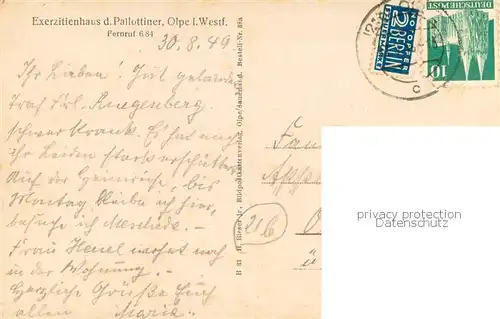 Exerzitienhaus d. Pallottiner, Olpe i. Westf.
Fernruf 684
30.8.49
Ihr Lieben! Gut gelandet.
Traf Frl. Ruegenberg
schwer krank. Es hat mich
ihr Leiden stark erschüttert.
Auf der Heimreise, bis
Montag bleibe ich hier,
besuche ich Meschede. -
Frau Henel wohnt noch
in der Wohnung. -
Herzliche Grüße Euch
allen Maria.
H. Bieser jr., Bildpostkartenverlag, Olpe/Sauerland. Bestell-Nr.
Fam
21b
NOTOPFER
2 BERLIN
STEUERMARKE
10
c
privacy protection
Datenschutz